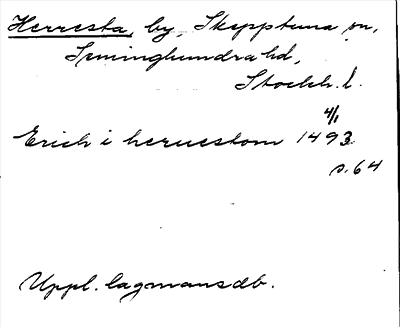 Herresta, by, Skepptuna sn,
Seminghundra hd,
Stockh. l.
4/1
Erich i heruestom 1493
s. 64
Uppl. lagmansdb.